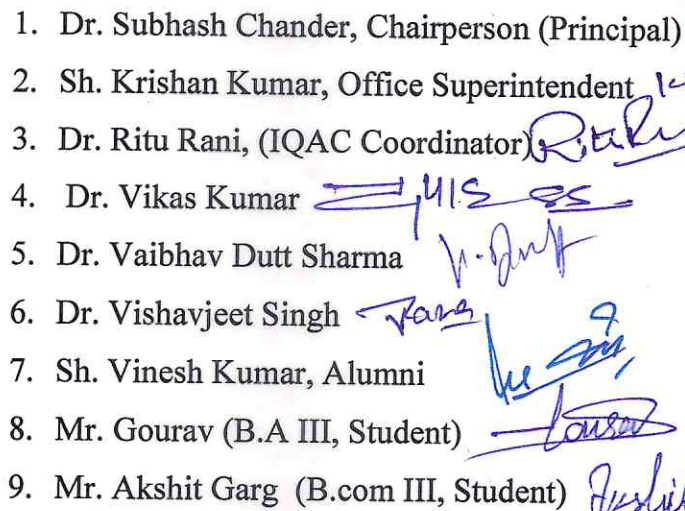 1. Dr. Subhash Chander, Chairperson (Principal)
2. Sh. Krishan Kumar, Office Superintendent
3. Dr. Ritu Rani, (IQAC Coordinator)
4. Dr. Vikas Kumar
5. Dr. Vaibhav Dutt Sharma
6. Dr. Vishavjeet Singh
7. Sh. Vinesh Kumar, Alumni
8. Mr. Gourav (B.A III, Student)
9. Mr. Akshit Garg (B.com III, Student)